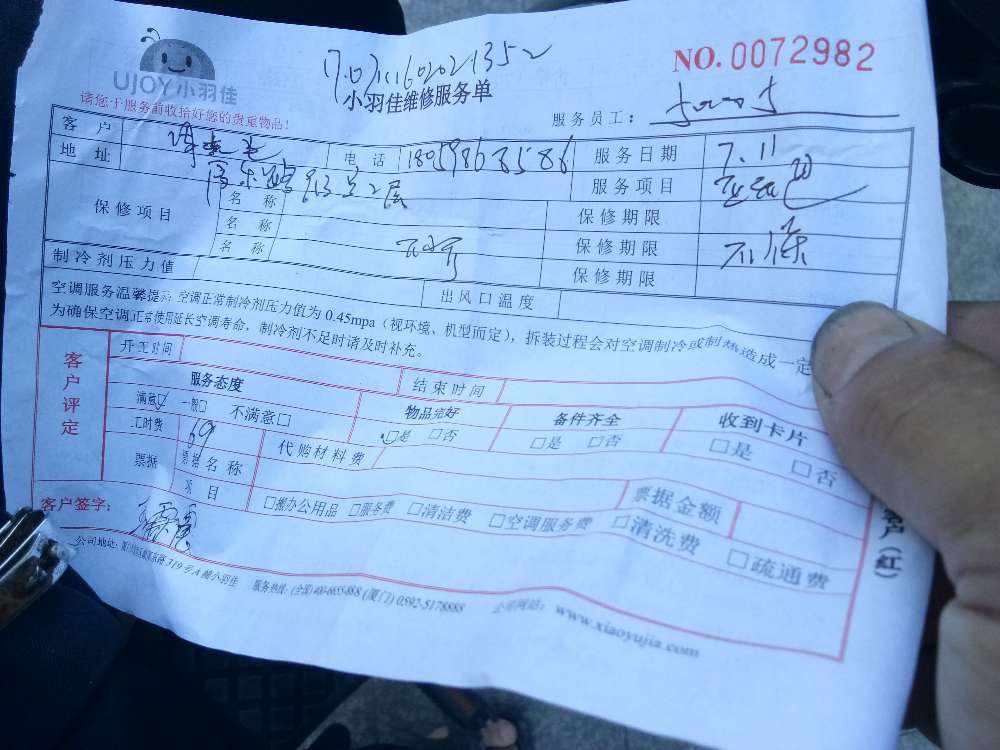 UJOY小羽佳
小羽佳维修服务单
NO.0072982
请您于服务前收拾好您的贵重物品!
服务员工:
客户 电话 18059863586 服务日期 7.11
地址 913号2层 服务项目
保修项目 名称 保修期限
名称 保修期限
名称 保修期限
制冷剂压力值 出风口温度
空调服务温馨提示 空调正常制冷剂压力值为0.45mpa(视环境、机型而定),拆装过程会对空调制冷或制热造成一定
为确保空调正常使用延长空调寿命,制冷剂不足时请及时补充。
客户评定
开工时间 结束时间
服务态度 物品完好 备件齐全 收到卡片
满意☑ 一般□ 不满意□ □是 □否 □是 □否 □是 □否
工时费 69 代购材料费
票据 票据名称 票据金额
项目 □搬办公用品 □服务费 □清洁费 □空调服务费 □清洗费 □疏通费
客户签字:
客户(红)
319号A幢小羽佳 服务热线: (厦门) 0592-5178888 公司网站: www.xiaoyujia.com